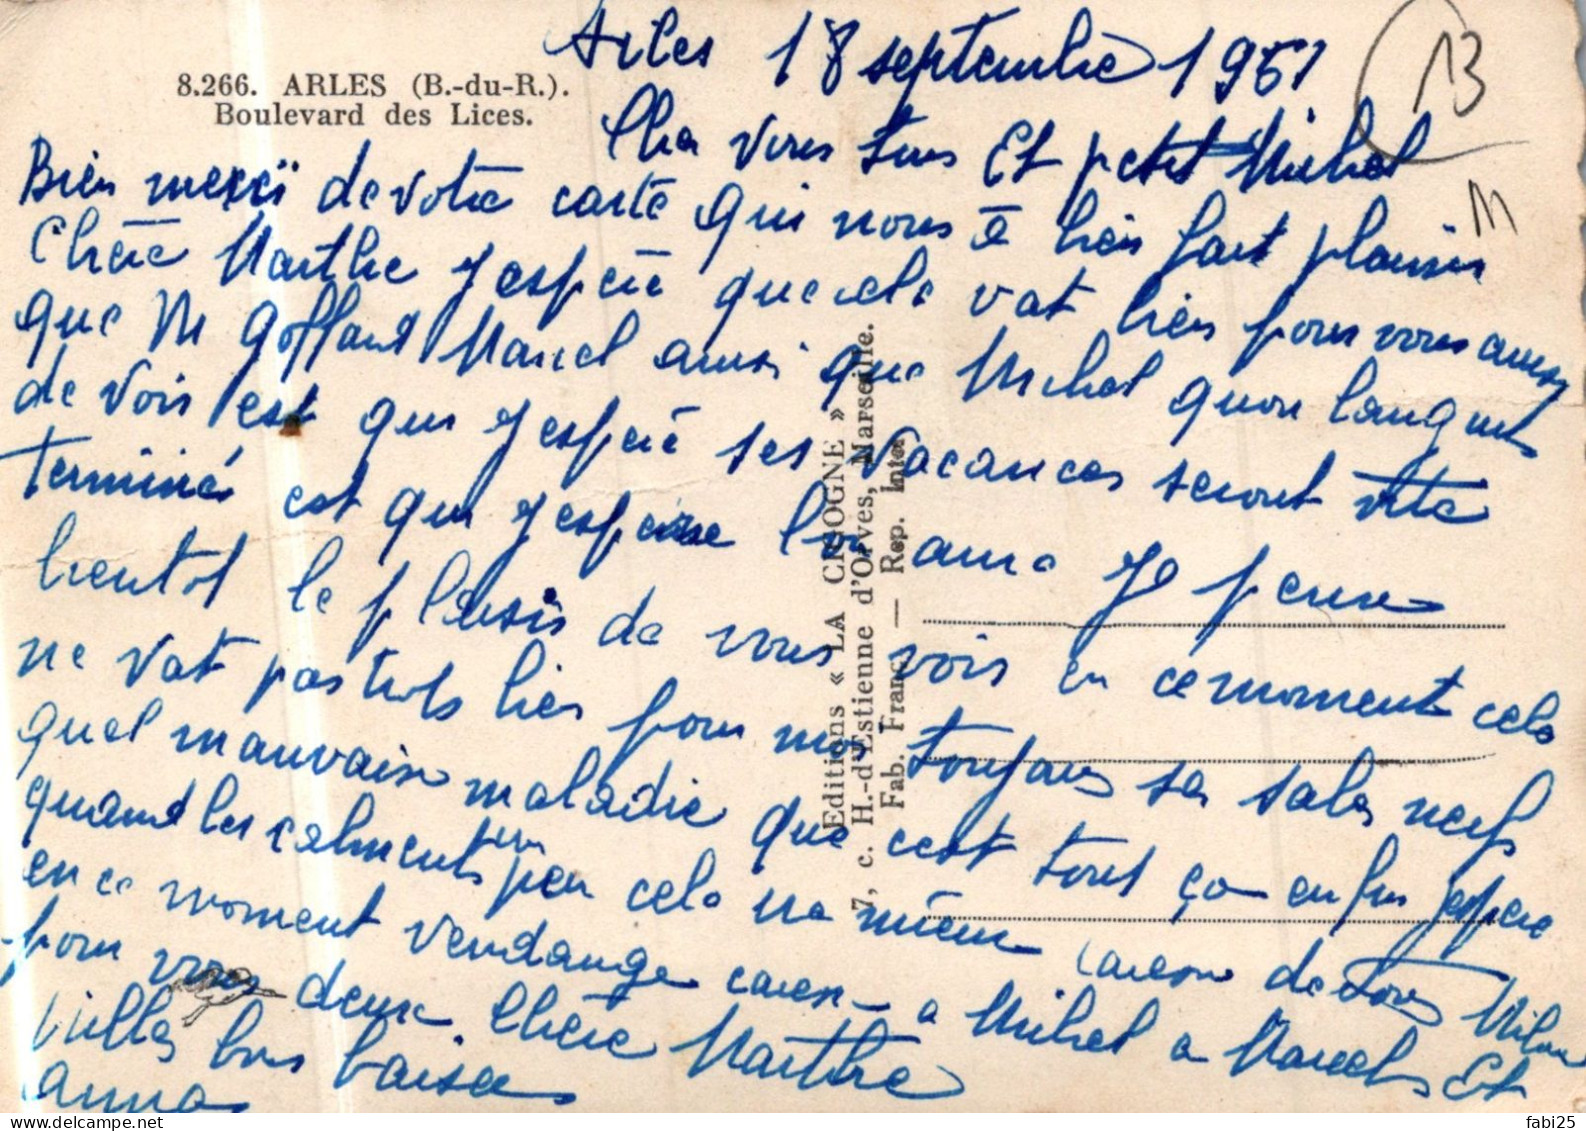 Arles 18 septembre 1951
8.266. ARLES (B.-du-R.).
Boulevard des Lices.
13
M
Cher vous tous Et petit Michel
Bien merci de votre carte qui nous a bien fait plaisir
Chère Marthe J espère que cela vat bien pour vous aussi
que M Goffard Marcel ainsi que Michel quon languit
de vois est que J espère ses vacances seront vite
terminés est que J espère lon aura
bientot le plaisir de vous vois en ce moment cela
ne vat pas trots bien pour moi toujours ses sales nerfs
quel mauvaise maladie que cest tout ça enfin Jespère
quand les calments un peu cela ira mieux
en ce moment vendange de tous Milou
pour vous deux Chère Marthe a Michel a Marcel Et
Milles bons baisers
Anna
Editions « LA CIGOGNE »
7, c. H.-d'Estienne d'Orves, Marseille.
Fab. Franc. — Rep. Inter
fabi25